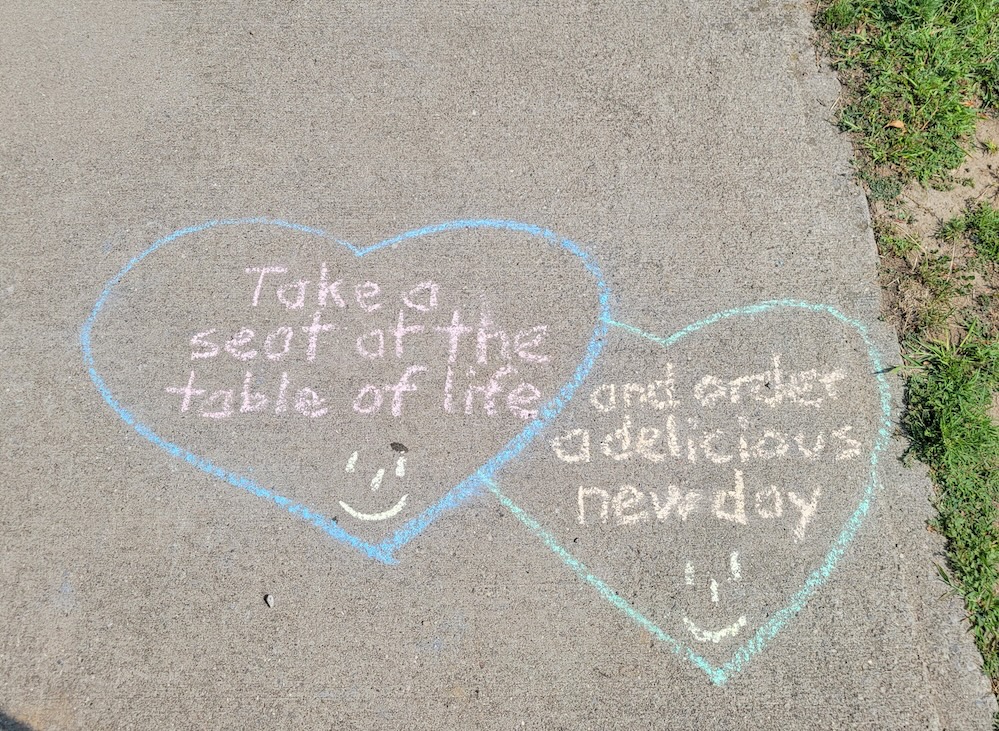 Take a
seat at the
table of life
and order
a delicious
new day